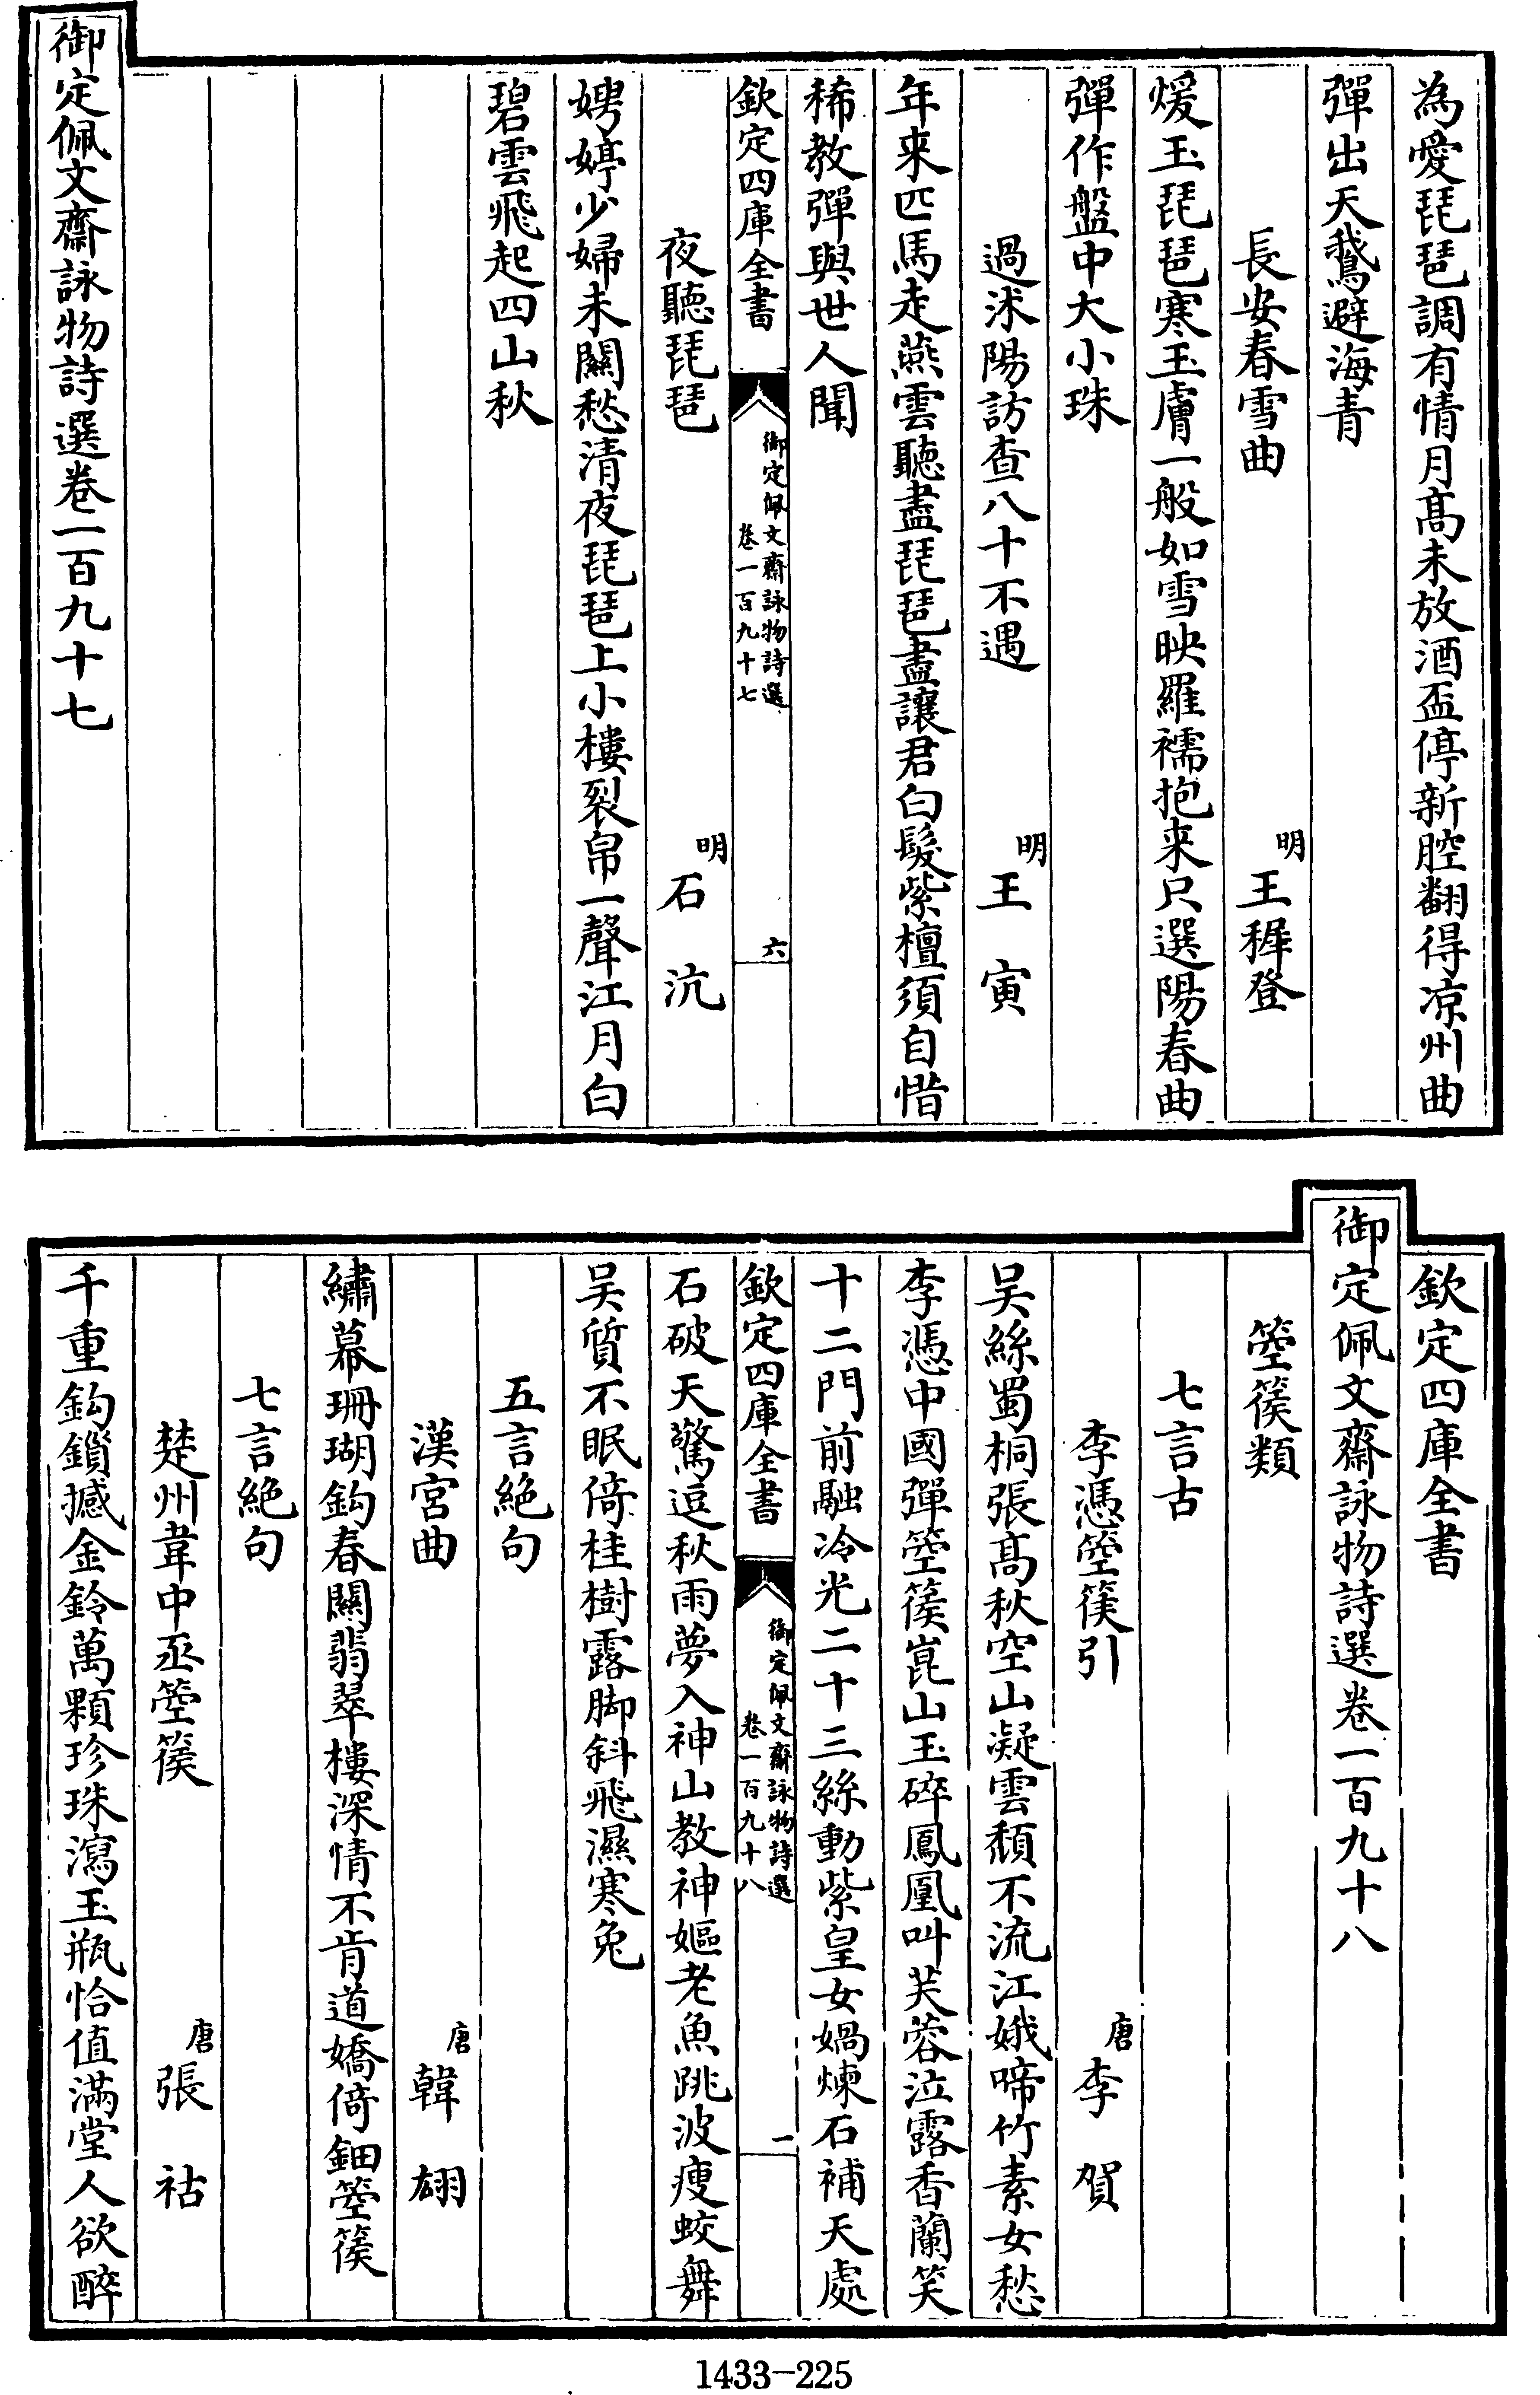 為愛琵琶調有情月髙未放酒盃停新腔翻得凉州曲
彈出天鵞避海青
長安春雪曲 明王穉登
煖玉琵琶寒玉膚一般如雪映羅襦抱来只選陽春曲
彈作盤中大小珠
過沭陽訪查八十不遇 明王寅
年来匹馬走燕雲聽盡琵琶盡讓君白髪紫檀須自惜
稀教彈與世人聞
欽定四庫全書 御定佩文齋詠物詩選 卷一百九十七 六
夜聽琵琶 明石沆
娉婷少婦未關愁清夜琵琶上小樓裂帛一聲江月白
碧雲飛起四山秋
御定佩文齋詠物詩選卷一百九十七
欽定四庫全書
御定佩文齋詠物詩選卷一百九十八
箜篌類
七言古
李憑箜篌引 唐李賀
吴絲蜀桐張髙秋空山凝雲頽不流江娥啼竹素女愁
李憑中國彈箜篌崑山玉碎鳳凰叫芙蓉泣露香蘭笑
十二門前融冷光二十三絲動紫皇女媧煉石補天處
欽定四庫全書 御定佩文齋詠物詩選 卷一百九十八 一
石破天驚逗秋雨夢入神山教神嫗老魚跳波瘦蛟舞
吴質不眠倚桂樹露脚斜飛濕寒兔
五言絶句
漢宮曲 唐韓翃
繡幕珊瑚鈎春關翡翠樓深情不肯道嬌倚鈿箜篌
七言絶句
楚州韋中丞箜篌 唐張祜
千重鈎鎖撼金鈴萬顆珍珠瀉玉瓶恰值滿堂人欲醉
1433-225